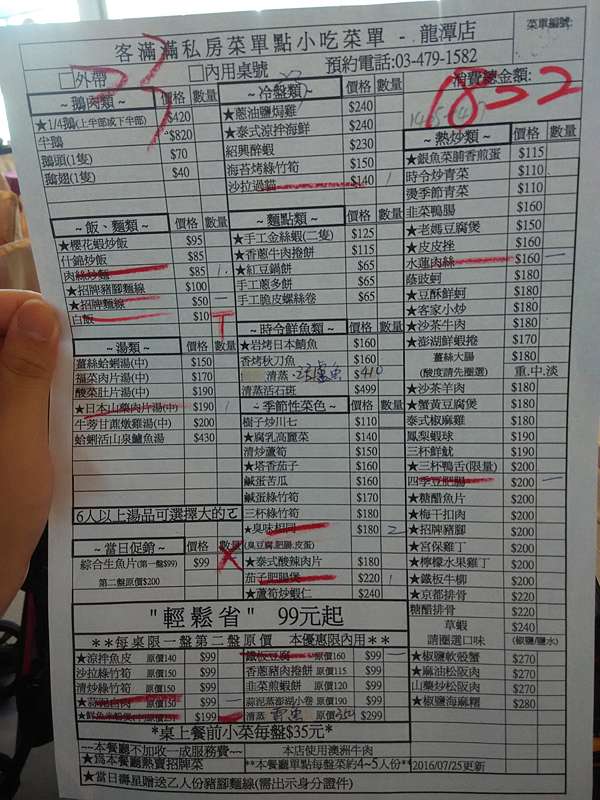 客滿滿私房菜單點小吃菜單 - 龍潭店
菜單編號:
□外帶 □內用桌號 預約電話:03-479-1582
消費總金額:
1832
~鵝肉類~ 價格 數量
★1/4鵝(上半部或下半部) $420
半鵝 $820
鵝頭(1隻) $70
鵝翅(1隻) $40
~飯、麵類~ 價格 數量
★櫻花蝦炒飯 $95
什錦炒飯 $85
肉絲炒麵 $85 1
★招牌豬腳麵線 $100
★招牌麵線 $50 一
白飯 $10
~湯類~ 價格 數量
薑絲蛤蜊湯(中) $150
福菜肉片湯(中) $170
酸菜肚片湯(中) $190
★日本山藥肉片湯(中) $190 1
牛蒡甘蔗燉雞湯(中) $200
蛤蜊活山泉鱸魚湯 $430
6人以上湯品可選擇大的
~當日促銷~ 價格 數量
綜合生魚片(第一盤$99) $99
第二盤原價$200
~冷盤類~ 價格 數量
★蔥油鹽焗雞 $240
★泰式涼拌海鮮 $240
紹興醉蝦 $230
海苔烤綠竹筍 $150
沙拉過貓 $140 1
~麵點類~ 價格 數量
★手工金絲蝦(二隻) $125
★香蔥牛肉捲餅 $115
★紅豆鍋餅 $65
手工蔥多餅 $65
手工脆皮螺絲卷 $65
~時令鮮魚類~ 價格 數量
★岩烤日本鯖魚 $160
香烤秋刀魚 $160
清蒸 $410
清蒸活石斑 $499
~季節性菜色~ 價格 數量
樹子炒川七 $110
★腐乳高麗菜 $140
清炒蘆筍 $150
★塔香茄子 $160
鹹蛋苦瓜 $160
鹹蛋綠竹筍 $170
三杯綠竹筍 $180
★臭味相同 $180 2
(臭豆腐.肥腸.皮蛋)
★泰式酸辣肉片 $180
茄子肥腸煲 $220 1
★蘆筍炒蝦仁 $240
~熱炒類~ 價格 數量
★銀魚菜脯香煎蛋 $115
時令炒青菜 $110
燙季節青菜 $110
韭菜鴨腸 $160
★老媽豆腐煲 $150
★皮皮挫 $160
水蓮肉絲 $160 一
蔭豉蚵 $180
★豆酥鮮蚵 $180
★客家小炒 $180
★沙茶牛肉 $180
★澎湖鮮蝦捲 $170
薑絲大腸 $180
(酸度請先圈選) 重.中.淡
★沙茶羊肉 $180
★蟹黃豆腐煲 $180
泰式椒麻雞 $180
鳳梨蝦球 $190
三杯鮮魷 $190
★三杯鴨舌(限量) $200
四季豆肥腸 $200 一
★糖醋魚片 $200
★梅干扣肉 $200
★招牌豬腳 $200
★宮保雞丁 $200
★檸檬水果雞丁 $200
★鐵板牛柳 $200
★京都排骨 $220
糖醋排骨 $220
草蝦 $240
請圈選口味 (椒鹽/鹽水)
★椒鹽軟殼蟹 $270
★麻油松阪肉 $270
山藥炒松阪肉 $270
★椒鹽海麻糬 $280
"輕鬆省" 99元起
**每桌限一盤第二盤原價 本優惠限內用**
★涼拌魚皮 原價140 $99 鐵板豆腐 原價160 $99 一
沙拉綠竹筍 原價150 $99 香蔥豬肉捲餅 原價115 $99
清炒綠竹筍 原價150 $99 韭菜煎蝦餅 原價120 $99
★蒜泥白肉 原價150 $99 一 蒜泥蒸澎湖小卷 原價190 $99
$199 一 清蒸 原價350 $299
*桌上餐前小菜每盤$35元*
---本餐廳不加收一成服務費--- 本店使用澳洲牛肉
★為本餐廳熱賣招牌菜 **本餐廳單點每盤菜約4~5人份** 2016/07/25更新
★當日壽星贈送乙人份豬腳麵線(需出示身分證件)